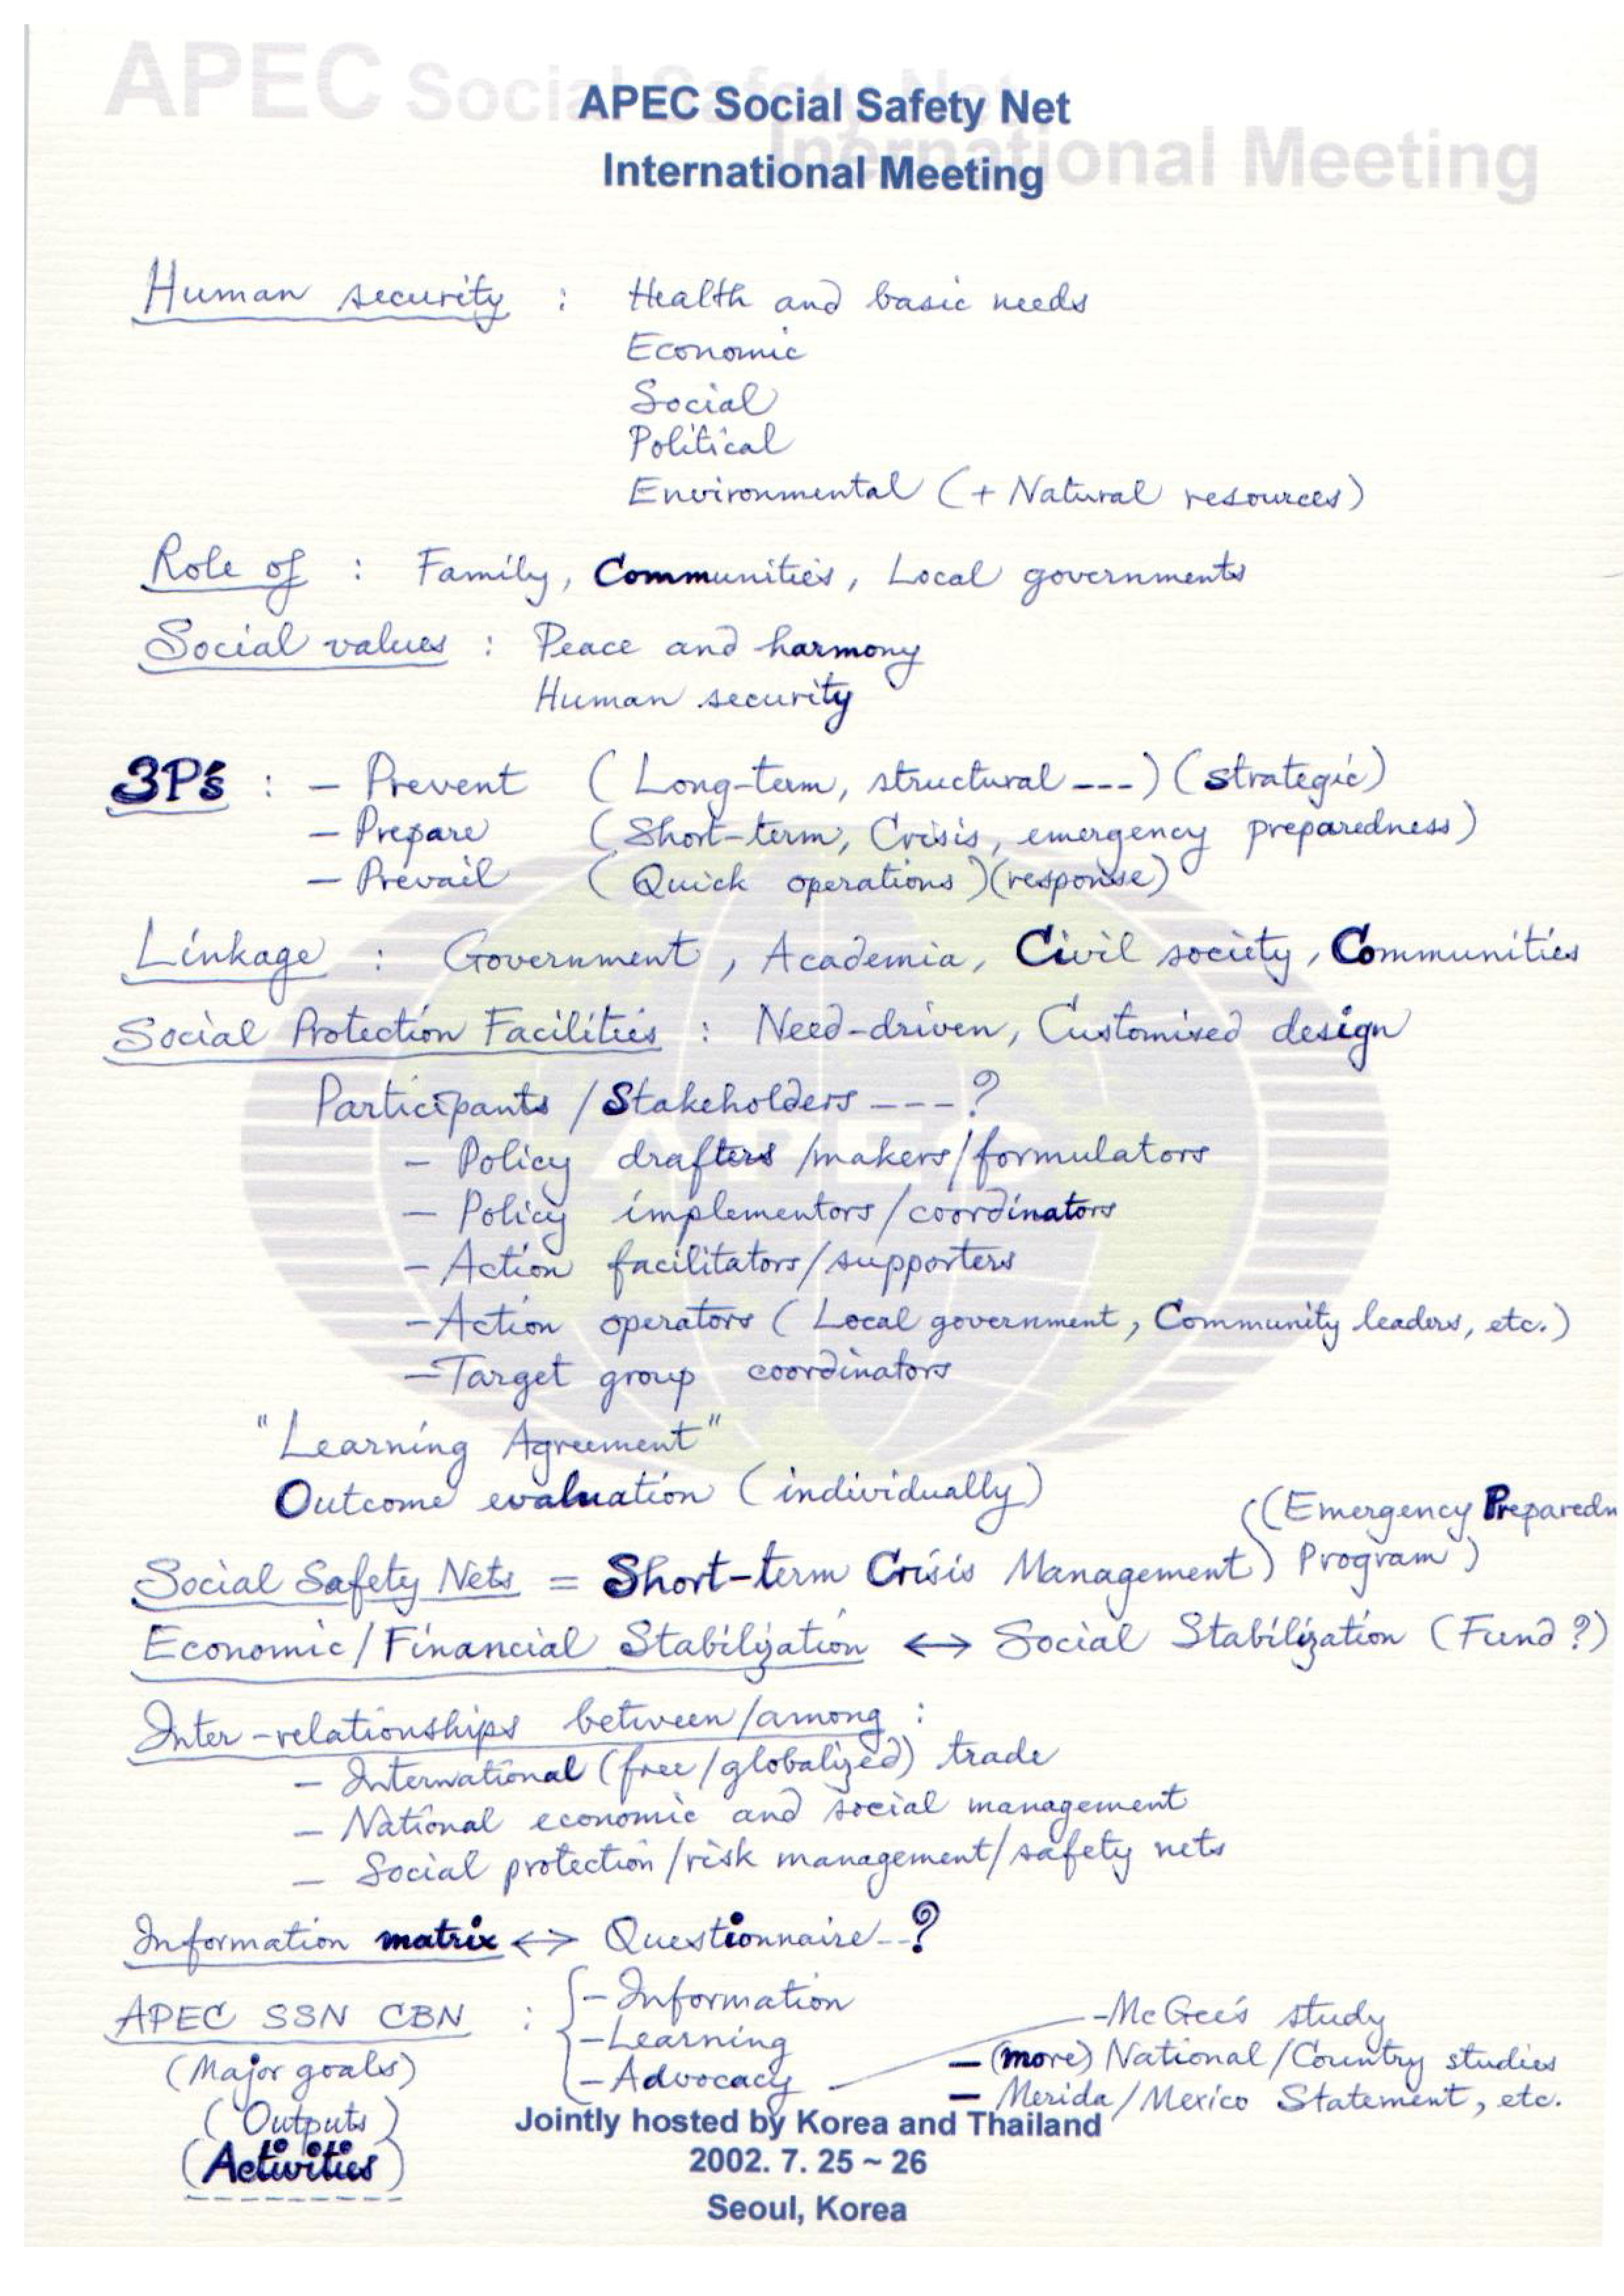 APEC Social Safety Net
International Meeting
APEC Social Safety Net
International Meeting
Human security : Health and basic needs
Economic
Social
Political
Environmental (+ Natural resources)
Role of : Family, Communities, Local governments
Social values : Peace and harmony
Human security
3P's : - Prevent (Long-term, structural ---) (strategic)
- Prepare (Short-term, Crisis, emergency preparedness)
- Prevail (Quick operations) (response)
Linkage : Government, Academia, Civil society, Communities
Social Protection Facilities : Need-driven, Customised design
Participants / Stakeholders ---?
- Policy drafters /makers/formulators
- Policy implementors/coordinators
- Action facilitators/supporters
- Action operators (Local government, Community leaders, etc.)
- Target group coordinators
"Learning Agreement"
Outcome evaluation (individually)
((Emergency Preparedn
Social Safety Nets = Short-term Crisis Management) Program)
Economic/Financial Stabilization ↔ Social Stabilization (Fund?)
Inter-relationships between/among :
- International (free/globalized) trade
- National economic and social management
- Social protection/risk management/safety nets
Information matrix ↔ Questionnaire--?
APEC SSN CBN : { - Information
- Learning
- Advocacy
- McGee's study
- (more) National/Country studies
- Merida/Mexico Statement, etc.
(Major goals)
(Outputs)
(Activities)
Jointly hosted by Korea and Thailand
2002. 7. 25 ~ 26
Seoul, Korea
APEC